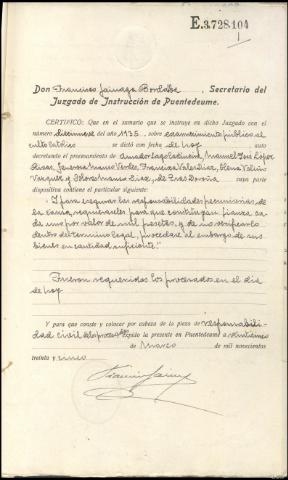 E.3.728.104
1
Don Francisco Jainaga Bordalba, Secretario del
Juzgado de Instrucción de Puentedeume.
CERTIFICO: Que en el sumario que se instruye en dicho Juzgado con el
número diecinueve del año 1935, sobre escarnecimiento público al
culto Católico se dictó con fecha de hoy auto
decretando el procesamiento de Amador Lago, Manuel José López
Rivas, Generosa Manso Verdes, Francisca Valerio Díaz, Elena
Vazquez y Dolores Manso, de cuya parte
dispositiva contiene el particular siguiente:
"Y para asegurar las responsabilidades pecuniarias de
la causa, requiéraseles para que constituyan fianza cada
uno por valor de mil pesetas, y de no verificarlo
dentro del término legal, procédase al embargo de sus
bienes en cantidad suficiente."
Fueron requeridos los procesados en el día
de hoy
Y para que conste y colocar por cabeza de la pieza de responsabili-
dad civil de expido la presente en Puentedeume a
de marzo de mil novecientos
treinta y cinco